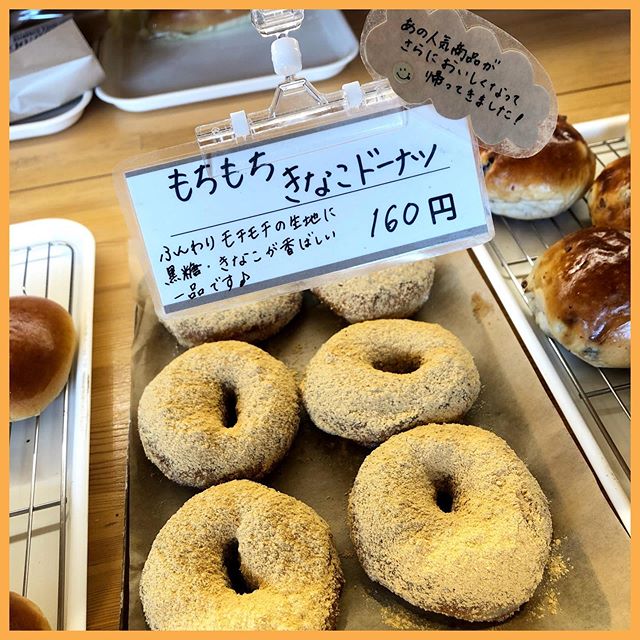 あの人気商品が
さらにおいしくなって
帰ってきました!
もちもち きなこドーナツ
160円
ふんわりモチモチの生地に
黒糖・きなこが香ばしい
一品です♪